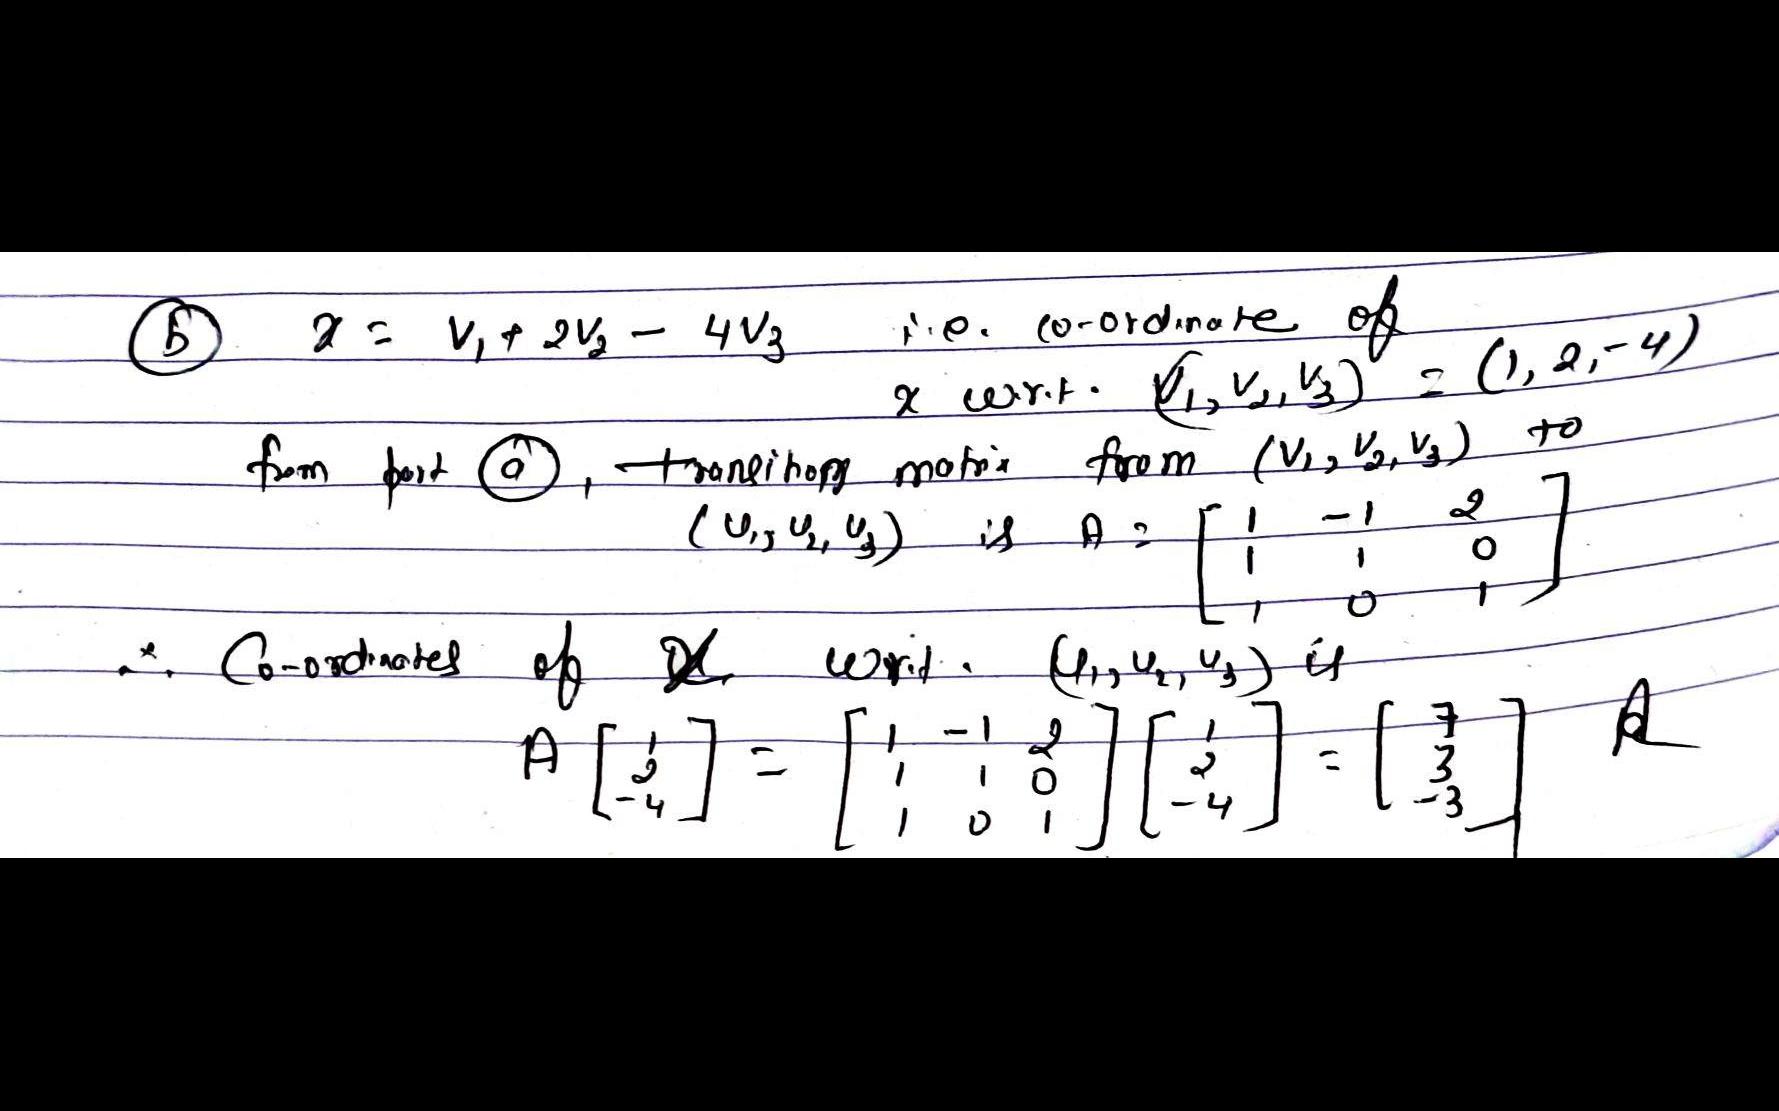 (b) x = v₁ + 2v₂ - 4v₃ i.e. co-ordinate of
x w.r.t. (v₁, v₂, v₃) = (1, 2, -4)
from part (a), transition matrix from (v₁, v₂, v₃) to
(u₁, u₂, u₃) is A = [1 -1 2
1 1 0
1 0 1]
∴ Co-ordinates of x w.r.t. (u₁, u₂, u₃) is
A [1 2 -4] = [1 -1 2; 1 1 0; 1 0 1] [1 2 -4] = [7 3 -3]